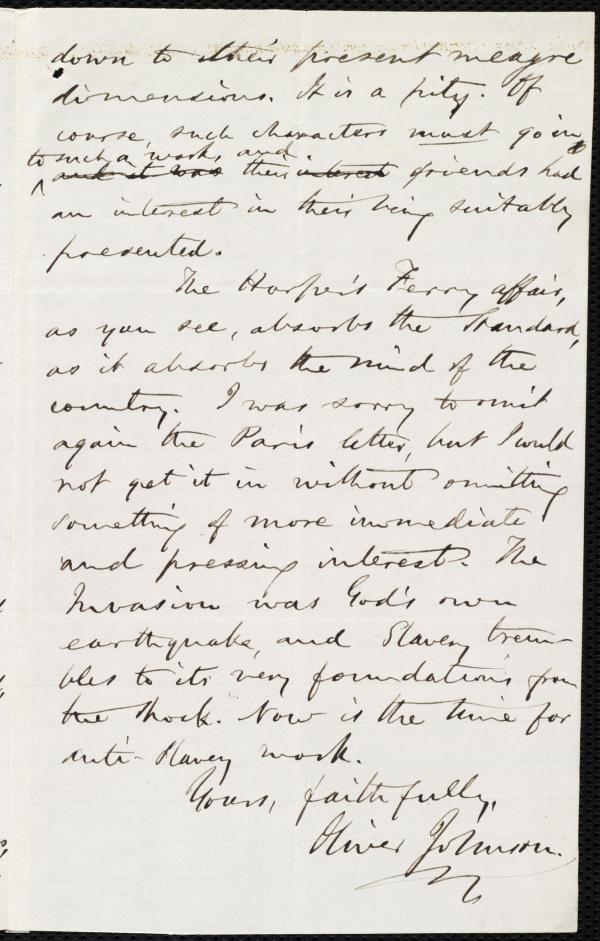 down to their present meagre
dimensions. It is a pity. Of
course, such characters must go in
to such a work, and
and it was their interest friends had
an interest in their being suitably
presented.
The Harper's Ferry affair,
as you see, absorbs the Standard,
as it absorbs the mind of the
country. I was sorry to omit
again the Paris letter, but I could
not get it in without omitting
something of more immediate
and pressing interest. The
Invasion was God's own
earthquake, and Slavery trem-
bles to its very foundations from
the shock. Now is the time for
anti-Slavery work.
Yours, faithfully,
Oliver Johnson.